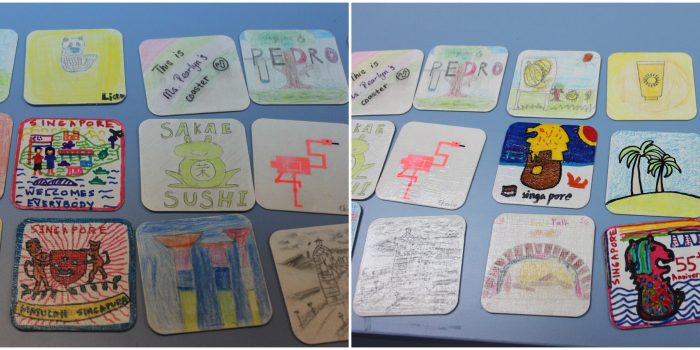 This is
Ms. Pearlyn's
coaster
PEDRO
SINGAPORE
WELCOMES
EVERYBODY
SAKAE
SUSHI
SINGAPORE
MAJULAH SINGAPURA
This is
s Pearlyn's
coaster
PEDRO
KAE
SHI
singapore
SINGAPORE
55th